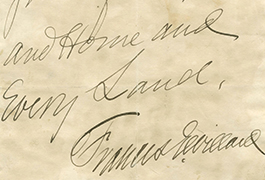 and Home and
Every Land.
Frances E Willard